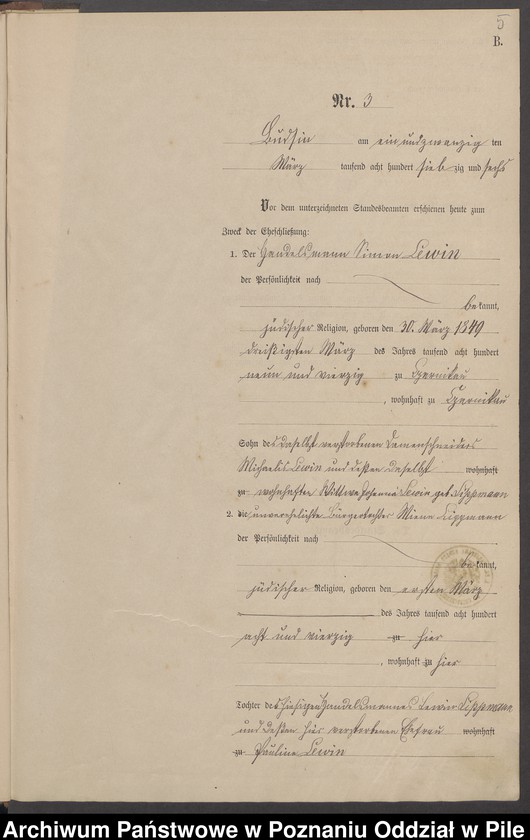 5
B.
Nr. 3
Budsin am ein und zwanzig ten
März tausend acht hundert sieb zig und sechs
Vor dem unterzeichneten Standesbeamten erschienen heute zum
Zweck der Eheschließung:
1. Der Handelsmann Simon Lewin
der Persönlichkeit nach
bekannt,
jüdischer Religion, geboren den 30. März 1849
dreißigsten März des Jahres tausend acht hundert
neun und vierzig zu Czarnikau
, wohnhaft zu Czarnikau
Sohn des daselbst verstorbenen Damenschneiders
Michaelis Lewin und dessen daselbst wohnhaft
zu wohnhaften Wittwe Johanna Lewin geb. Lippmann
2. Die unverehelichte Bürgertochter Miene Lippmann
der Persönlichkeit nach
bekannt,
jüdischer Religion, geboren den ersten März
des Jahres tausend acht hundert
acht und vierzig zu hier
, wohnhaft zu hier
Tochter des hiesigen Handelsmannes Lewin Lippmann
und dessen hier verstorbenen Ehefrau wohnhaft
zu Pauline Lewin
Archiwum Państwowe w Poznaniu Oddział w Pile